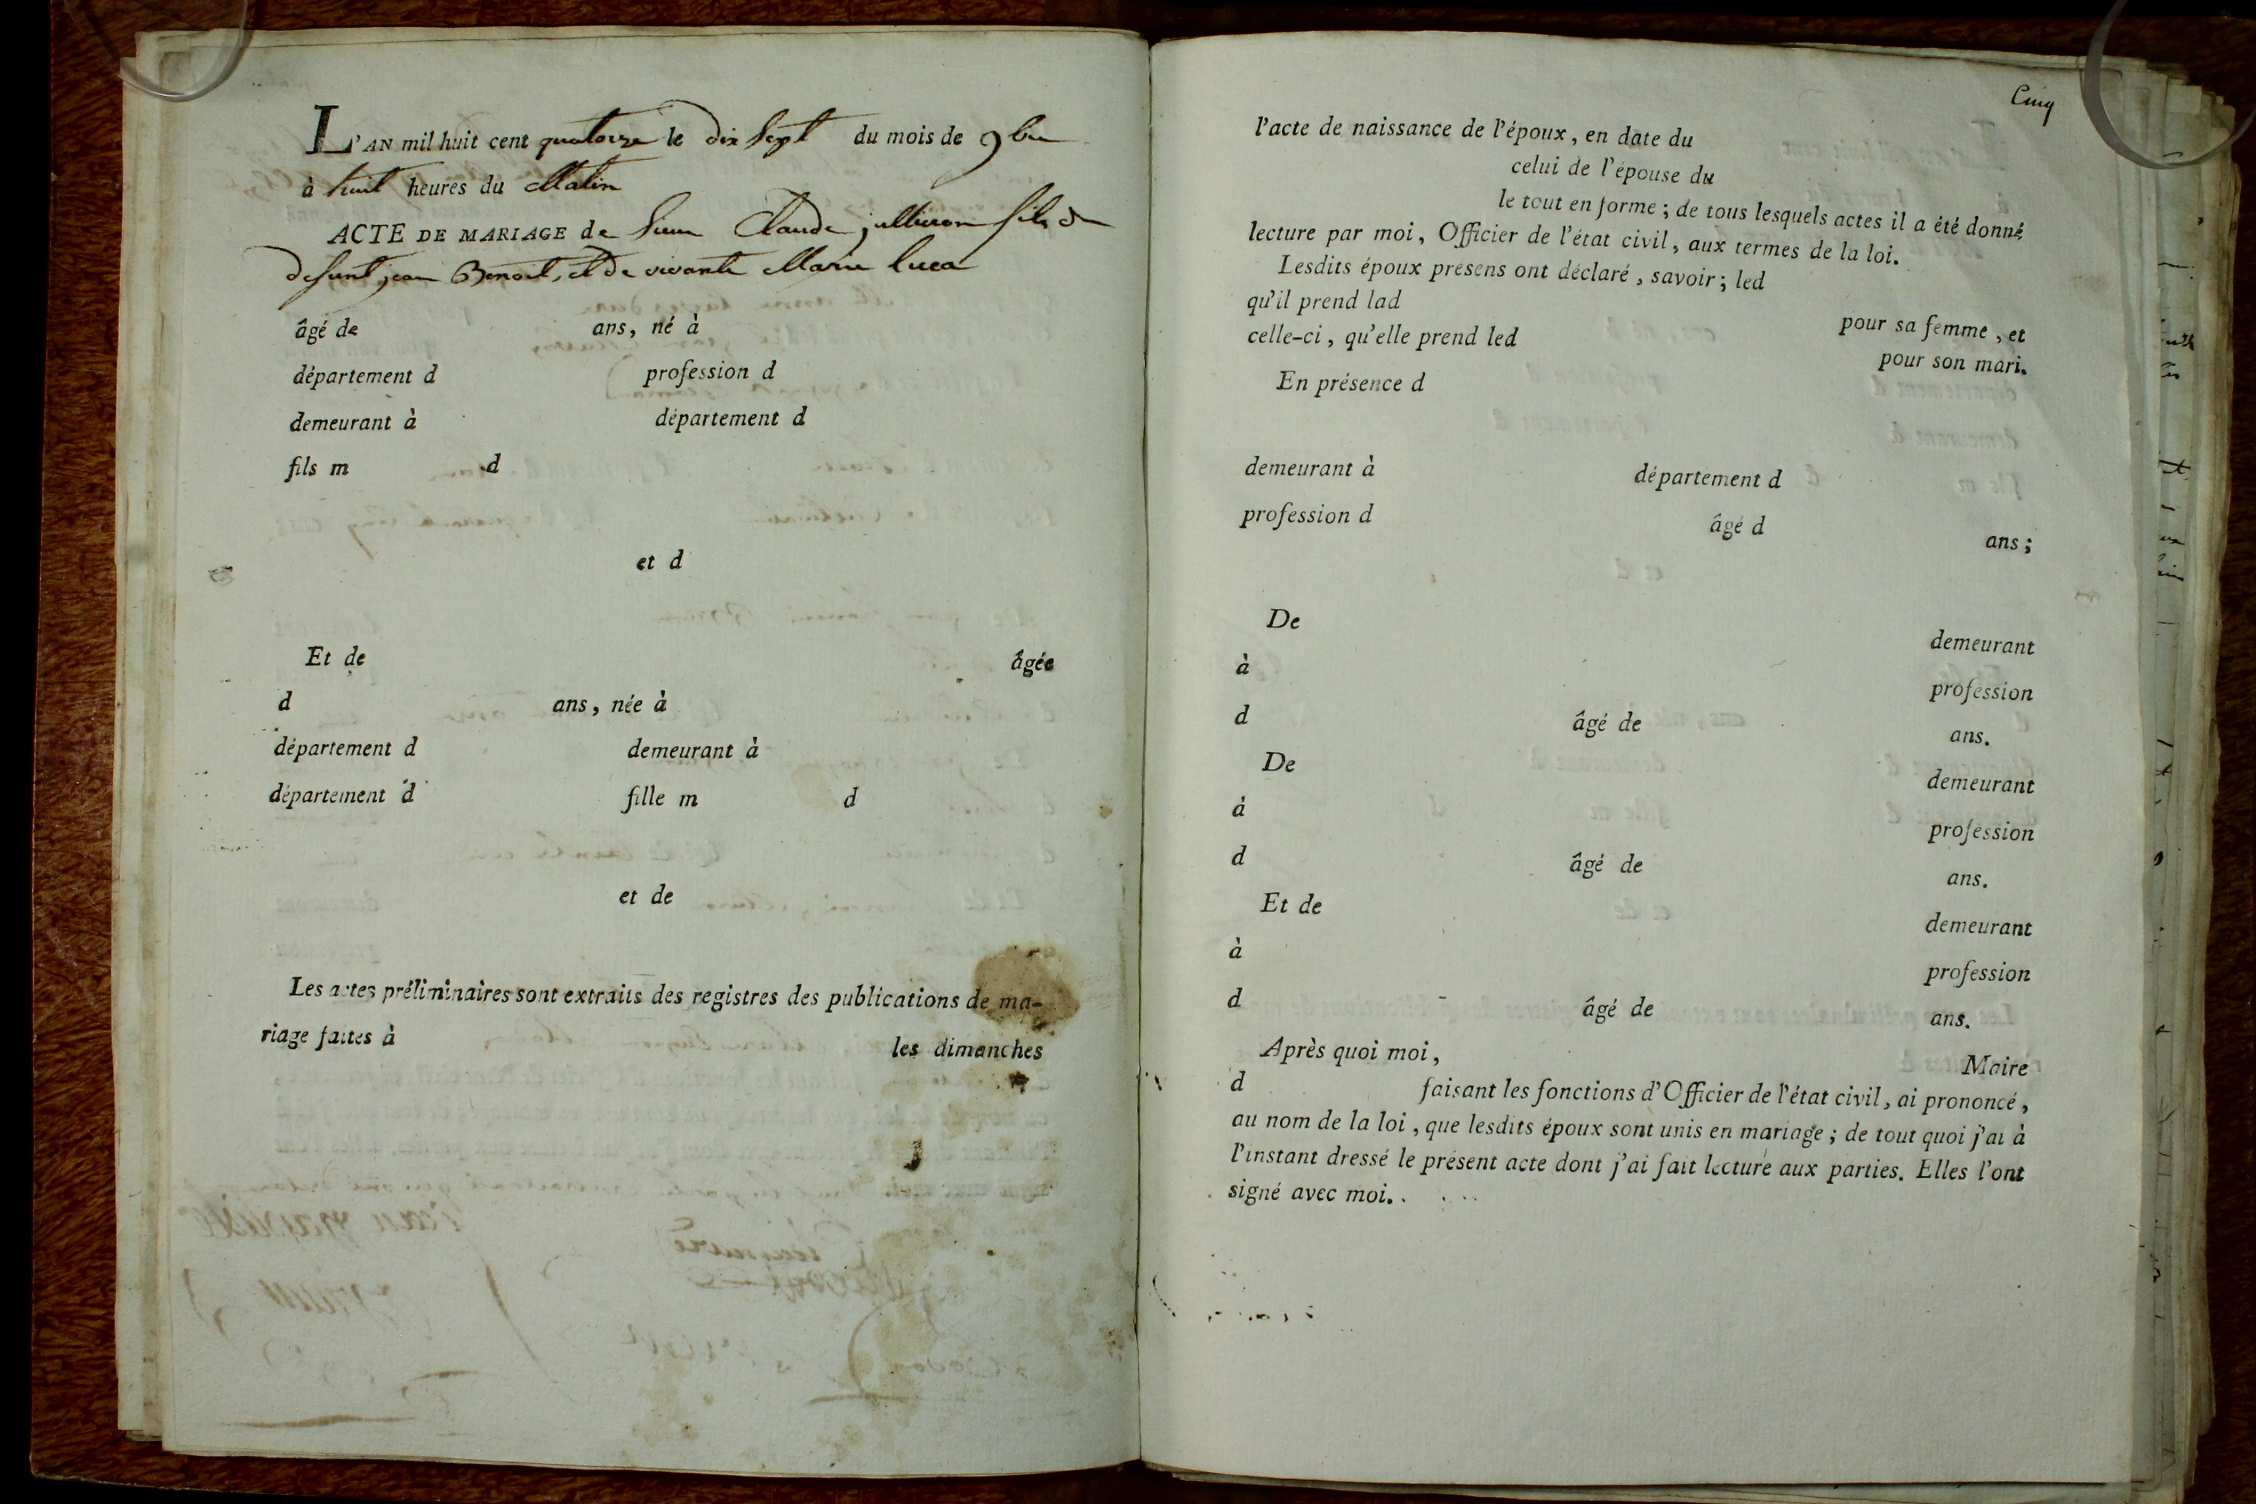 L'AN mil huit cent quatorze le dix Sept du mois de 9bre
à huit heures du Matin
ACTE DE MARIAGE de Sieur Claude jullieron fils de
defunt jean Benoit, et de vivante Marie Luca
âgé de ans, né à
département d profession d
demeurant à département d
fils m d
et d
Et de âgée
d ans, née à
département d demeurant à
département d fille m d
et de
Les actes préliminaires sont extraits des registres des publications de ma-
riage faites à les dimanches
Cinq
l'acte de naissance de l'époux, en date du
celui de l'épouse du
le tout en forme ; de tous lesquels actes il a été donné
lecture par moi, Officier de l'état civil, aux termes de la loi.
Lesdits époux présens ont déclaré, savoir ; led
qu'il prend lad pour sa femme, et
celle-ci, qu'elle prend led pour son mari.
En présence d
demeurant à département d
profession d âgé d ans ;
De demeurant
à profession
d âgé de ans.
De demeurant
à profession
d âgé de ans.
Et de demeurant
à profession
d âgé de ans.
Après quoi moi, Maire
d faisant les fonctions d'Officier de l'état civil, ai prononcé,
au nom de la loi, que lesdits époux sont unis en mariage ; de tout quoi j'ai à
l'instant dressé le présent acte dont j'ai fait lecture aux parties. Elles l'ont
signé avec moi.